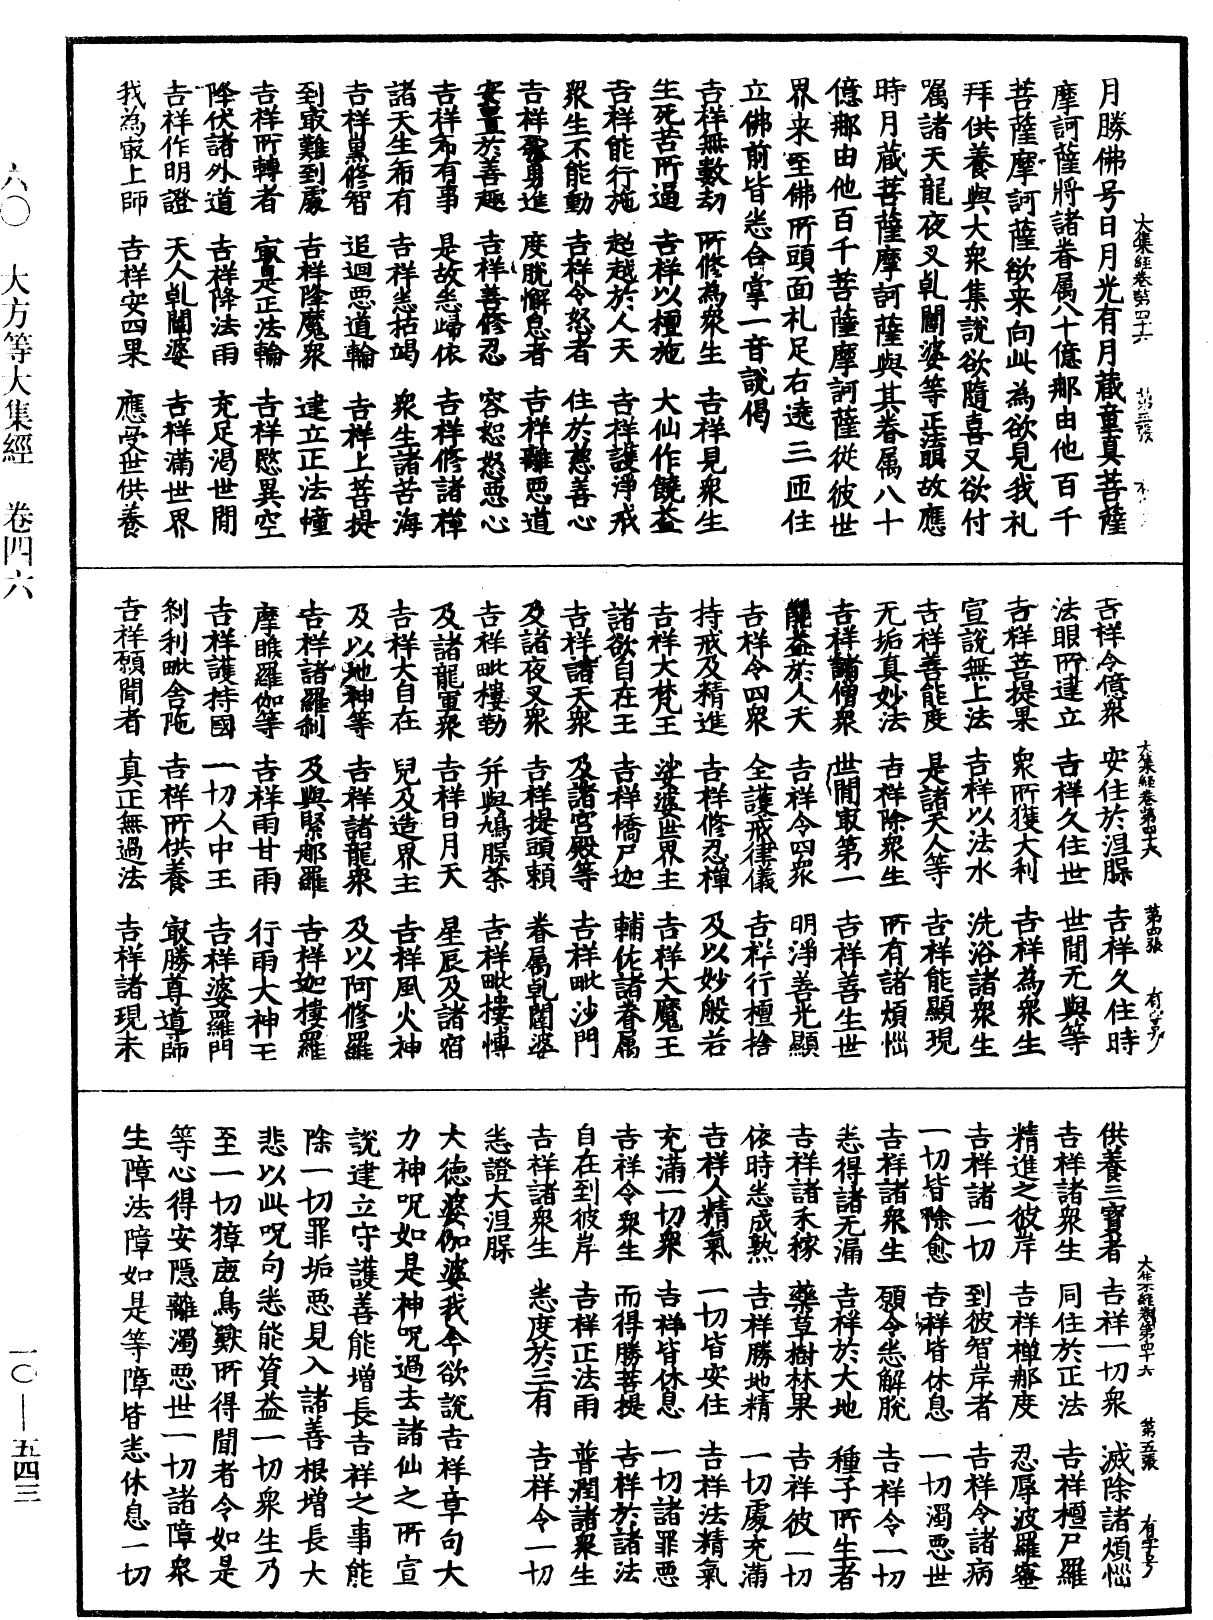 大集經卷第四十六
月勝佛号日月光有月蔵童真菩薩
摩訶薩將諸眷属八十億那由他百千
菩薩摩訶薩欲来向此為欲見我礼
拜供養與大衆集說欲隨喜又欲付
囑諸天龍夜叉乹闥婆等正法眼故應
時月蔵菩薩摩訶薩與其眷属八十
億那由他百千菩薩摩訶薩從彼世
界来至佛所頭面礼足右遶三匝住
立佛前皆悉合掌一音說偈
吉祥無數劫 所修為衆生 吉祥見衆生
生死苦所逼 吉祥以檀施 大仙作饒益
吉祥能行施 超越於人天 吉祥護淨戒
衆生不能動 吉祥令怒者 住於慈善心
吉祥勇進 度脫懈怠者 吉祥離惡道
安置於善趣 吉祥善修忍 容恕怒惡心
吉祥希有事 是故悉歸依 吉祥修諸禪
諸天生希有 吉祥悉枯竭 衆生諸苦海
吉祥修智 追迴惡道輪 吉祥上菩提
到㝡難到處 吉祥降魔衆 建立正法幢
吉祥所轉者 㝡是正法輪 吉祥愍異空
降伏諸外道 吉祥降法雨 充足渴世間
吉祥作明證 天人乹闥婆 吉祥滿世界
我為㝡上師 吉祥安四果 應受世供養
大集經卷第四十六 第四張 有字号
吉祥令億衆 安住於涅脲 吉祥久住時
法眼所建立 吉祥久住世 世間无與等
吉祥菩提果 衆所獲大利 吉祥為衆生
宣說無上法 吉祥以法水 洗浴諸衆生
吉祥善能度 是諸天人等 吉祥能顯現
无垢真妙法 吉祥除衆生 所有諸煩惱
吉祥諸僧衆 世間㝡第一 吉祥善生世
饒益於人天 吉祥令四衆 明淨善光顯
吉祥令四衆 全護戒律儀 吉祥行檀捨
持戒及精進 吉祥修忍禪 及以妙般若
吉祥大梵王 娑婆世界主 吉祥大魔王
諸欲自在王 吉祥憍尸迦 輔佐諸眷属
吉祥諸天衆 及諸宮殿等 吉祥毗沙門
及諸夜叉衆 吉祥提頭賴 眷属乹闥婆
吉祥毗樓勒 并與鳩脲茶 吉祥毗樓博
及諸龍軍衆 吉祥日月天 星辰及諸宿
吉祥大自在 兒及造界主 吉祥風火神
及以地神等 吉祥諸龍衆 及以阿修羅
吉祥諸羅刹 及與緊那羅 吉祥如樓羅
摩睺羅伽等 吉祥雨甘雨 行雨大神王
吉祥護持國 一切人中王 吉祥婆羅門
刹利毗舍陁 吉祥所供養 㝡勝尊導師
吉祥願聞者 真正無過法 吉祥諸現未
大集經卷第四十六 第五張 有字号
供養三寶者 吉祥一切衆 滅除諸煩惱
吉祥諸衆生 同住於正法 吉祥檀尸羅
精進之彼岸 吉祥禅那度 忍辱波羅蜜
吉祥諸一切 到彼智岸者 吉祥令諸病
一切皆除愈 吉祥皆休息 一切濁惡世
吉祥諸衆生 願令悉解脫 吉祥令一切
悉得諸无漏 吉祥於大地 種子所生者
吉祥諸禾稼 藥草樹林果 吉祥彼一切
依時悉成熟 吉祥勝地精 一切處充滿
吉祥人精氣 一切皆安住 吉祥法精氣
充滿一切衆 吉祥皆休息 一切諸罪惡
吉祥令衆生 而得勝菩提 吉祥於諸法
自在到彼岸 吉祥正法雨 普潤諸衆生
吉祥諸衆生 悉度於三有 吉祥令一切
悉證大涅脲
大德婆伽婆我今欲說吉祥章句大
力神呪如是神呪過去諸仙之所宣
說建立守護善能增長吉祥之事能
除一切罪垢惡見入諸善根增長大
悲以此呪句悉能資益一切衆生乃
至一切獐鹿鳥獸所得聞者令如是
等心得安隱離濁惡世一切諸障衆
生障法障如是等障皆悉休息一切
六〇 大方等大集經 卷四六
一〇—五四三